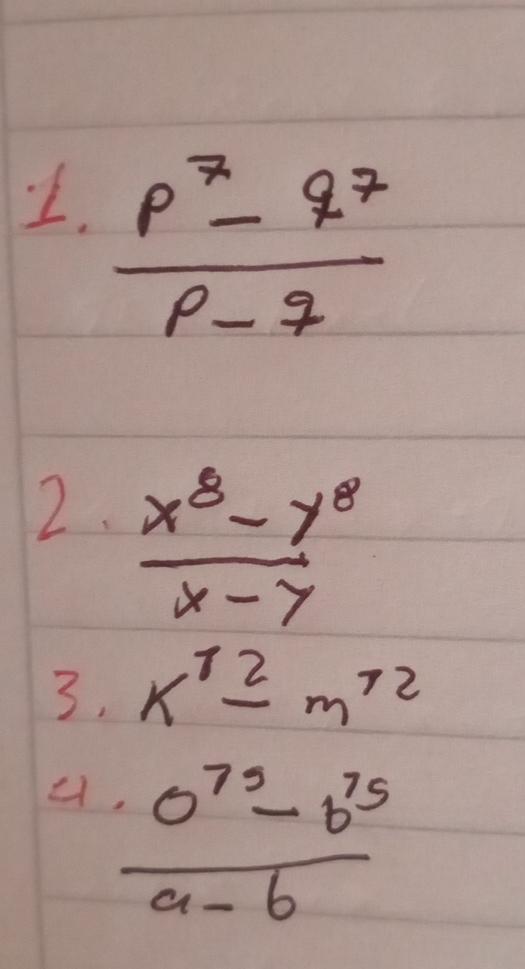 1. p⁷ - q⁷
p - q
2. x⁸ - y⁸
x - y
3. K¹² - m¹²
4. a¹⁵ - b¹⁵
a - b